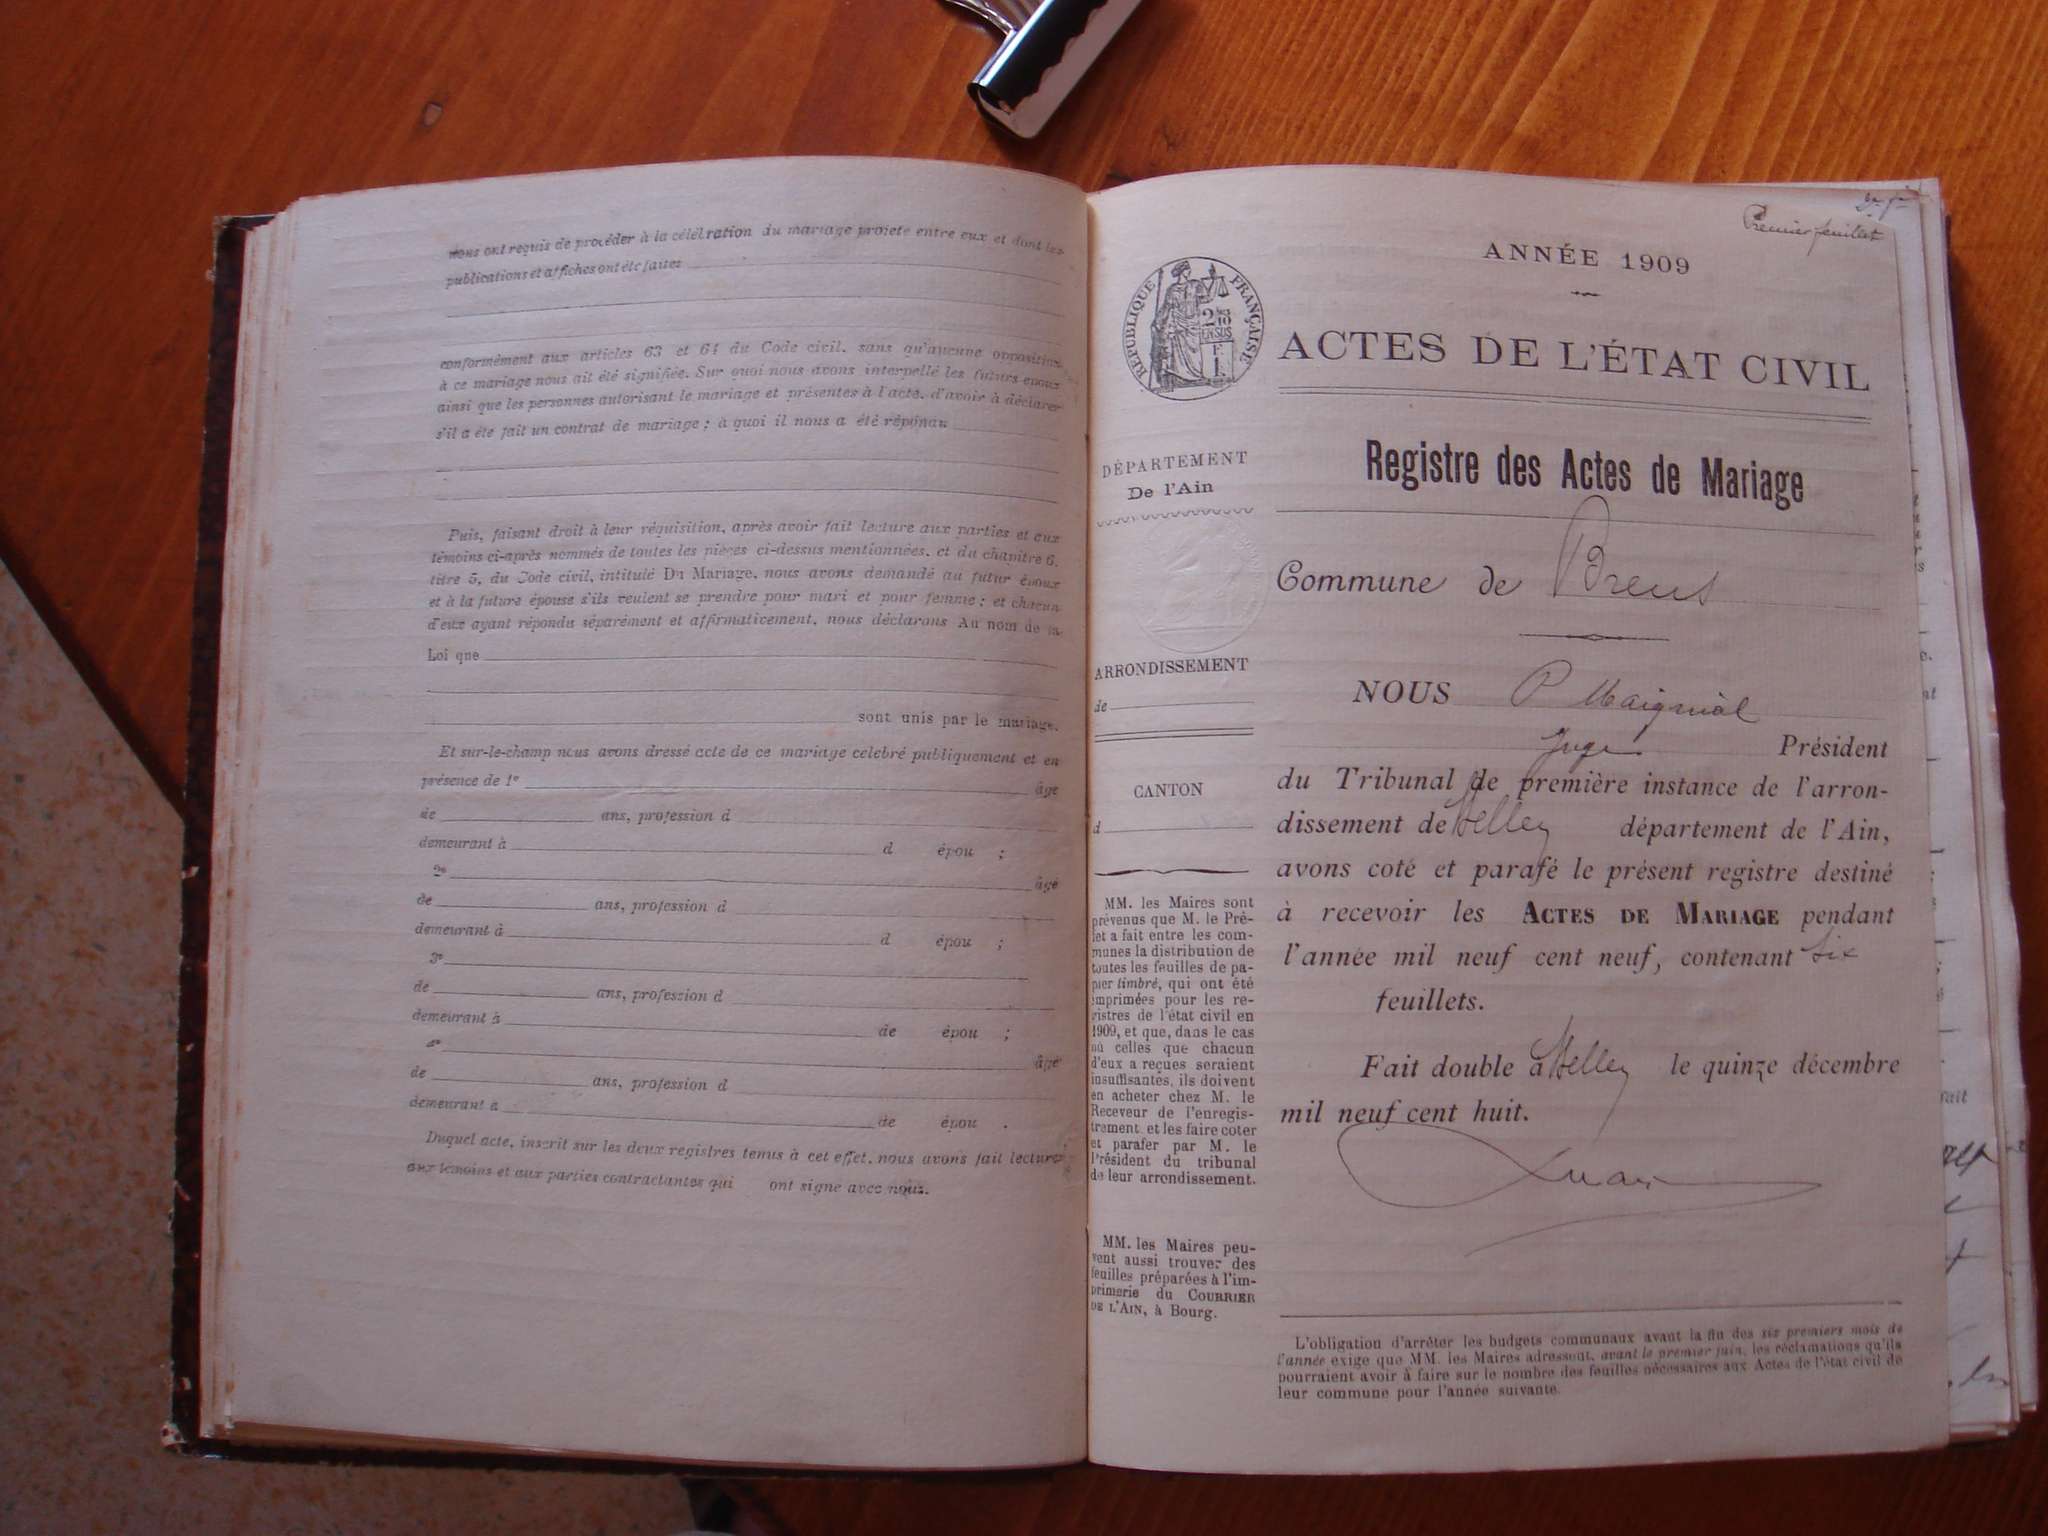 nous ont requis de procéder à la célébration du mariage projeté entre eux et dont les
publications et affiches ont été faites
conformément aux articles 63 et 64 du Code civil, sans qu'aucune opposition
à ce mariage nous ait été signifiée. Sur quoi nous avons interpellé les futurs époux
ainsi que les personnes autorisant le mariage et présentes à l'acte, d'avoir à déclarer
s'il a été fait un contrat de mariage ; à quoi il nous a été répondu
Puis, faisant droit à leur réquisition, après avoir fait lecture aux parties et aux
témoins ci-après nommés de toutes les pièces ci-dessus mentionnées, et du chapitre 6,
titre 5, du Code civil, intitulé Du Mariage, nous avons demandé au futur époux
et à la future épouse s'ils veulent se prendre pour mari et pour femme ; et chacun
d'eux ayant répondu séparément et affirmativement, nous déclarons Au nom de la
Loi que
sont unis par le mariage.
Et sur-le-champ nous avons dressé acte de ce mariage célébré publiquement et en
présence de 1° âgé
de ans, profession d
demeurant à d épou ;
2° âgé
de ans, profession d
demeurant à d épou ;
3°
de ans, profession d
demeurant à de épou ;
4° âgé
de ans, profession d
demeurant à de épou .
Duquel acte, inscrit sur les deux registres tenus à cet effet, nous avons fait lecture
aux témoins et aux parties contractantes qui ont signé avec nous.
Premier feuillet
ANNÉE 1909
RÉPUBLIQUE FRANÇAISE
2 10
EN SUS
1 F.
ACTES DE L'ÉTAT CIVIL
DÉPARTEMENT
De l'Ain
ARRONDISSEMENT
de
CANTON
d
MM. les Maires sont
prévenus que M. le Pré-
fet a fait entre les com-
munes la distribution de
toutes les feuilles de pa-
pier timbré, qui ont été
imprimées pour les re-
gistres de l'état civil en
1909, et que, dans le cas
où celles que chacun
d'eux a reçues seraient
insuffisantes, ils doivent
en acheter chez M. le
Receveur de l'enregis-
trement et les faire coter
et parafer par M. le
Président du tribunal
de leur arrondissement.
MM. les Maires peu-
vent aussi trouver des
feuilles préparées à l'im-
primerie du COURRIER
DE L'AIN, à Bourg.
Registre des Actes de Mariage
Commune de Brens
NOUS P Maignial
Juge Président
du Tribunal de première instance de l'arron-
dissement de Belley département de l'Ain,
avons coté et parafé le présent registre destiné
à recevoir les ACTES DE MARIAGE pendant
l'année mil neuf cent neuf, contenant six
feuillets.
Fait double à Belley le quinze décembre
mil neuf cent huit.
L'obligation d'arrêter les budgets communaux avant la fin des six premiers mois de
l'année exige que MM. les Maires adressent, avant le premier juin, les réclamations qu'ils
pourraient avoir à faire sur le nombre des feuilles nécessaires aux Actes de l'état civil de
leur commune pour l'année suivante.